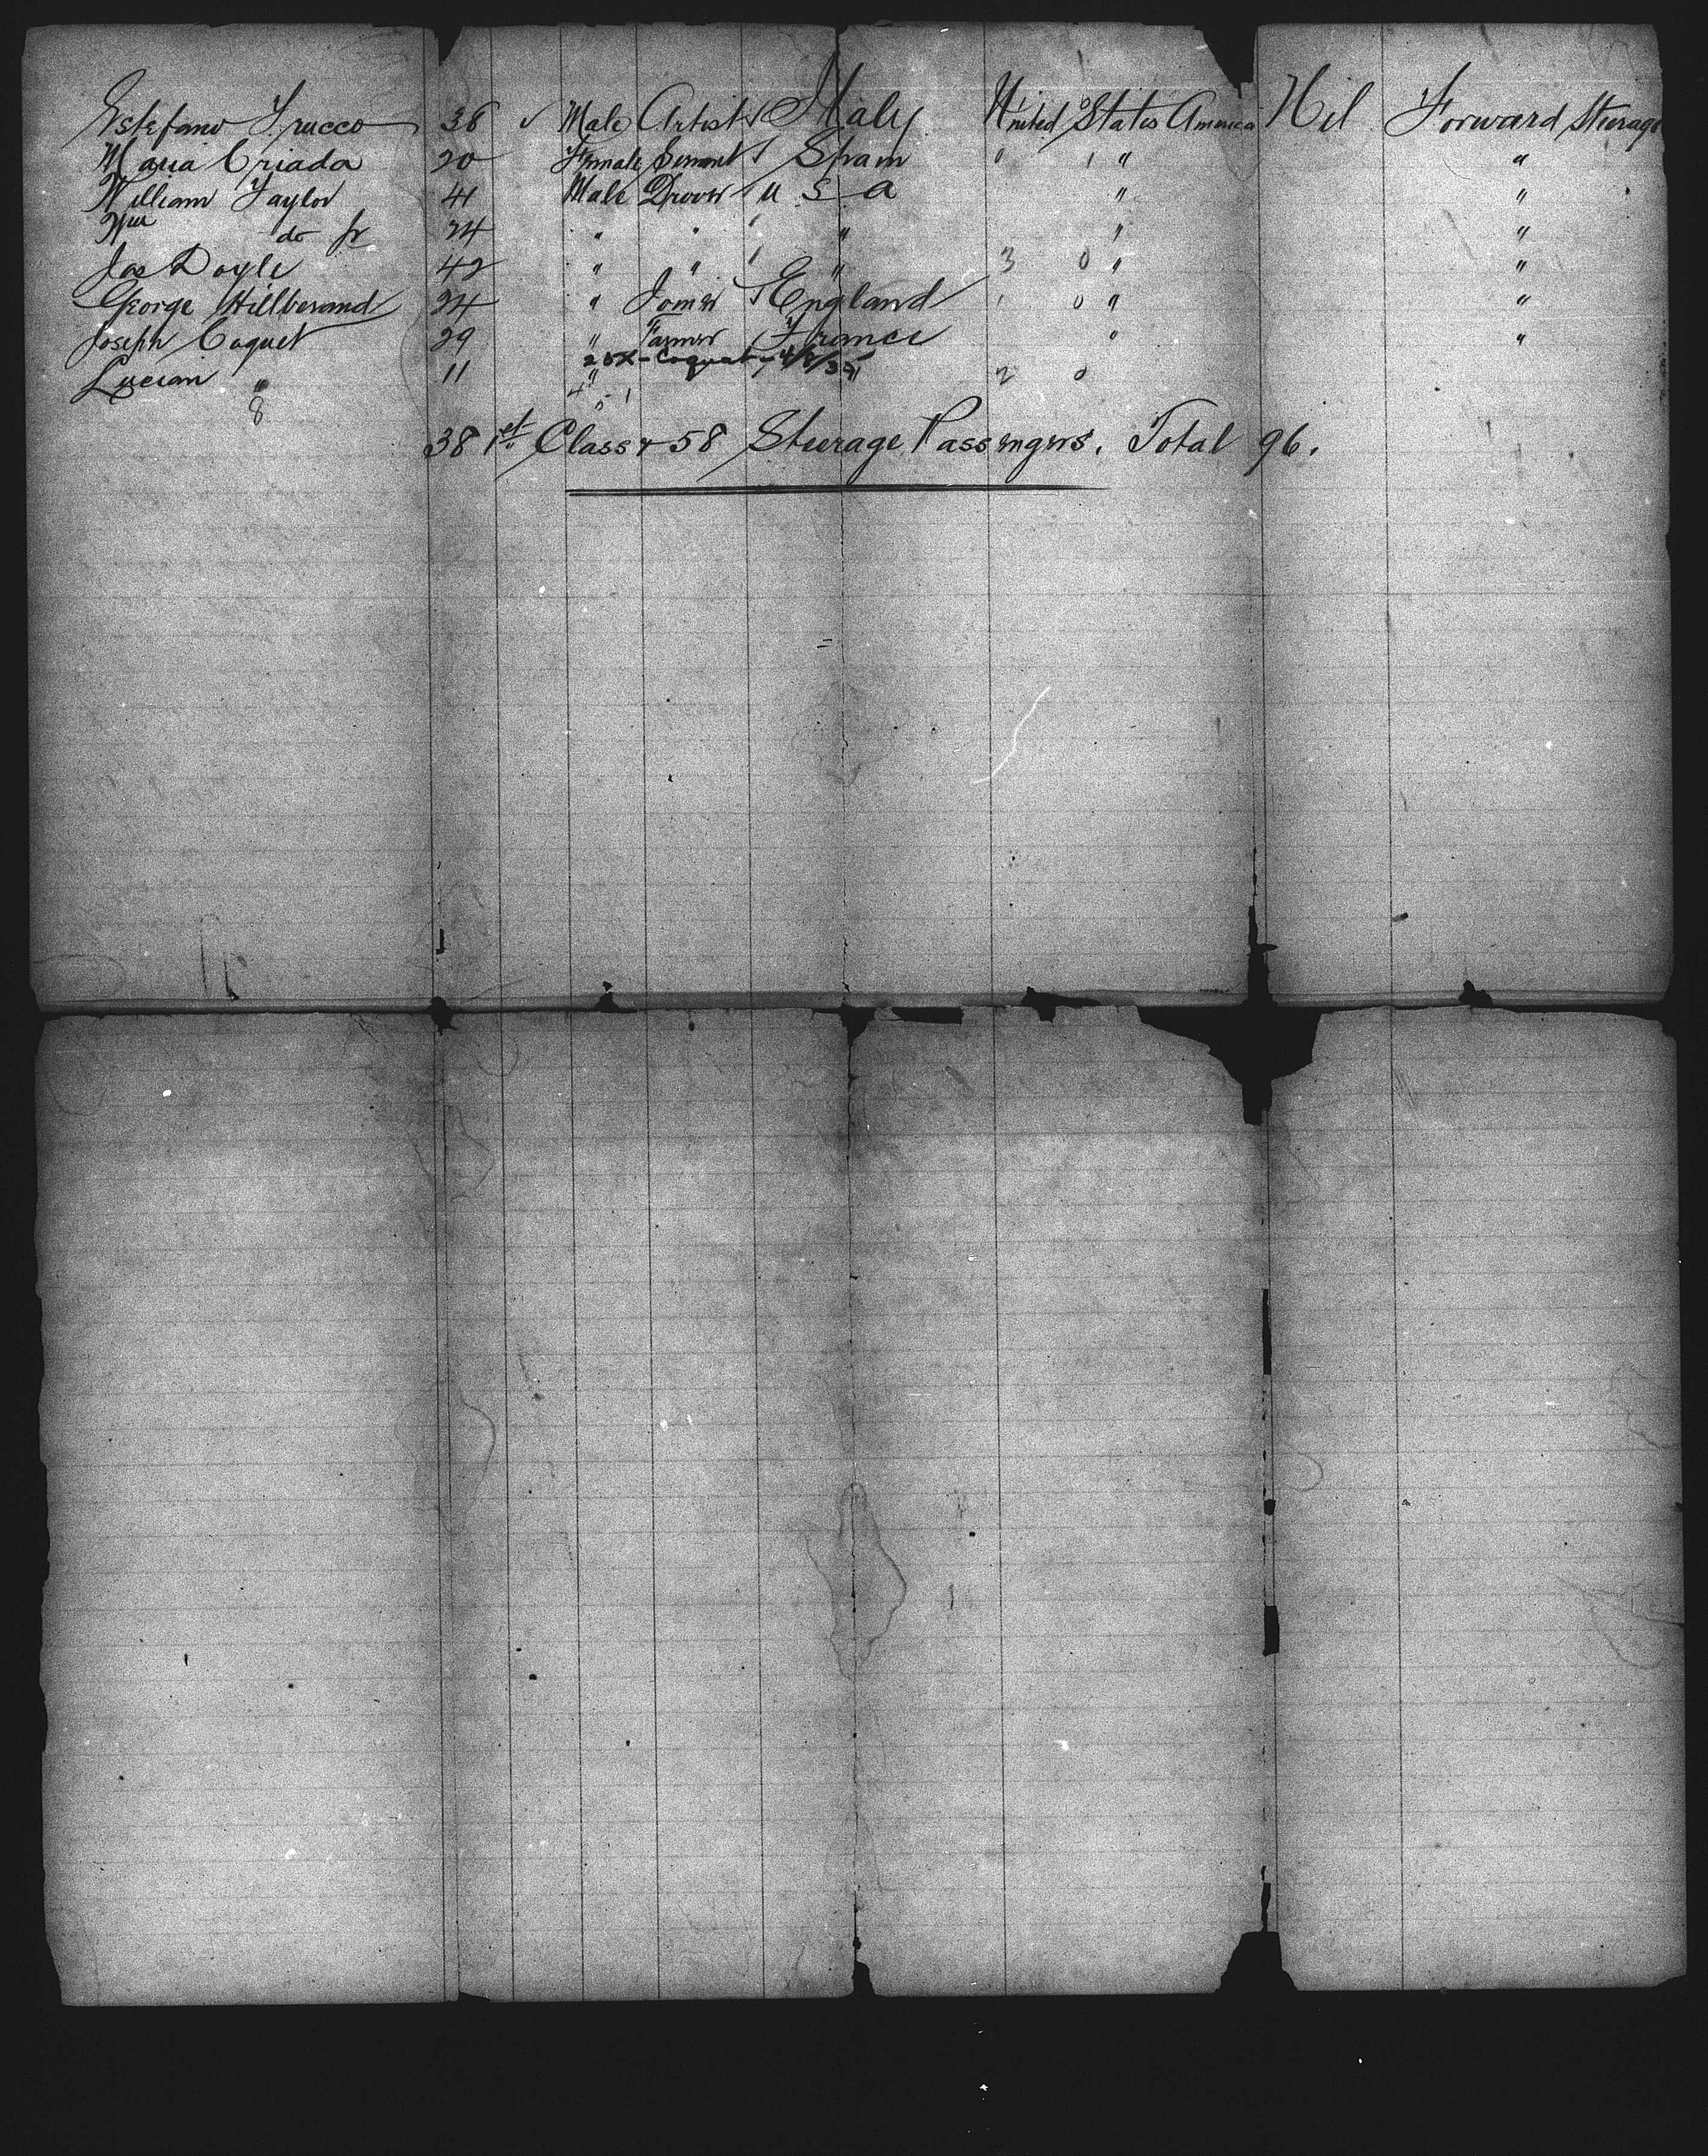 Estefano Trucco 38 ✓ Male Artist Italy United States America Nil Forward Steerage
Maria Criada 20 Female Servant Spain " 1 " "
William Taylor 41 Male Drover U S A " "
Wm do Jr 24 " " " " "
Jas Doyle 42 " " " 3 0 " "
George Hillberand 24 " Joiner England 1 0 " "
Joseph Coquet 29 " Farmer France " "
25X-Coquet-4/8/35
Lucian " 11 " " 2 0
8
38 1st Class & 58 Steerage Passengers. Total 96.